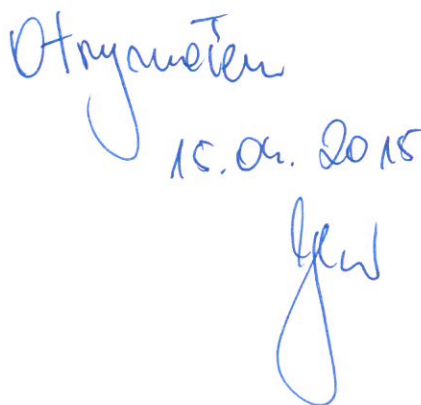 Otrzymałem
15.04.2015